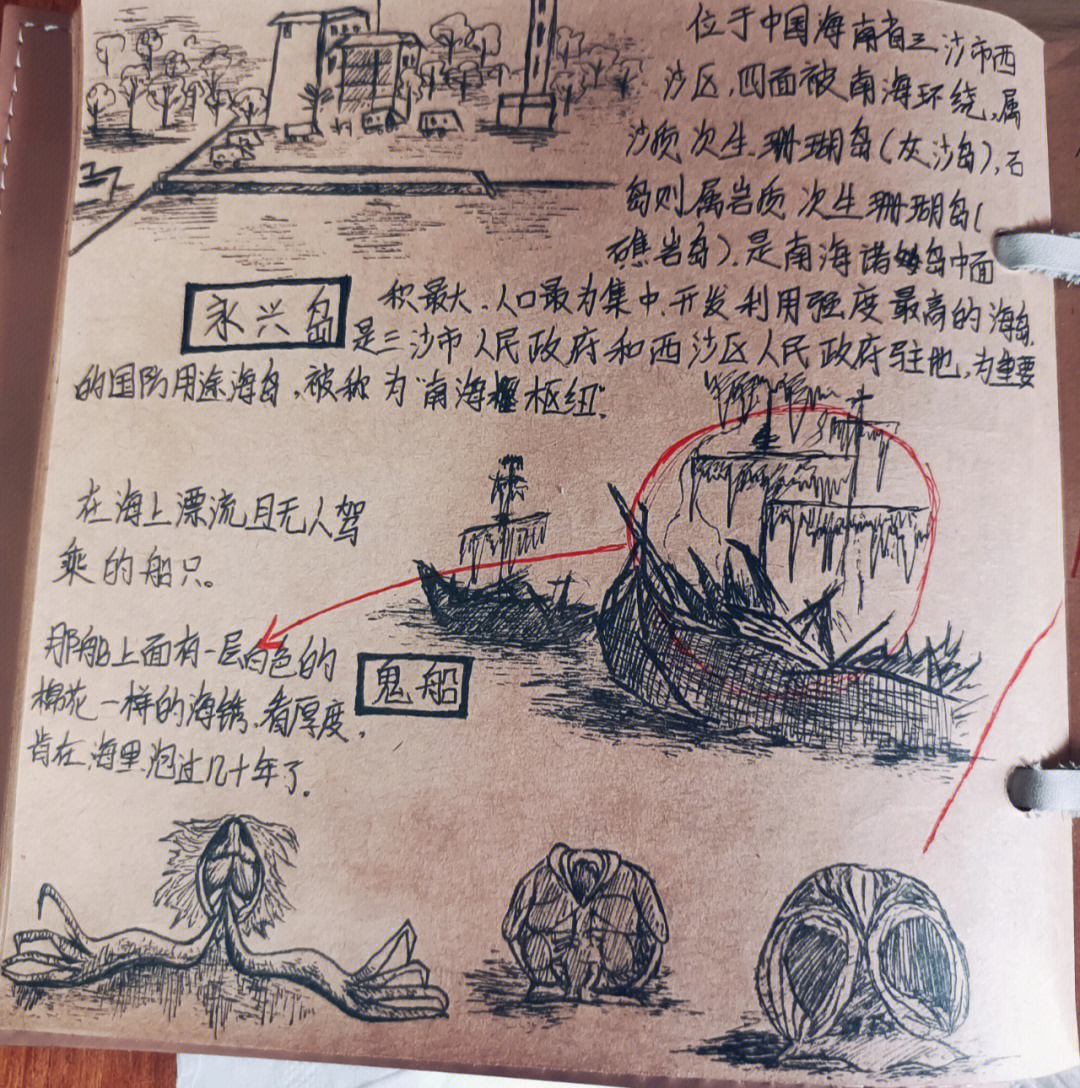 位于中国海南省三沙市西
沙区,四面被南海环绕,属
沙质次生珊瑚岛(灰沙岛),石
岛则属岩质次生珊瑚岛(
礁岩岛).是南海诸岛中面
永兴岛
积最大、人口最为集中、开发利用强度最高的海岛.
是三沙市人民政府和西沙区人民政府驻地,为重要
的国防用途海岛,被称为"南海枢纽".
在海上漂流且无人驾
乘的船只。
那船上面有一层白色的
棉花一样的海锈.看厚度,
肯在海里泡过几十年了.
鬼船